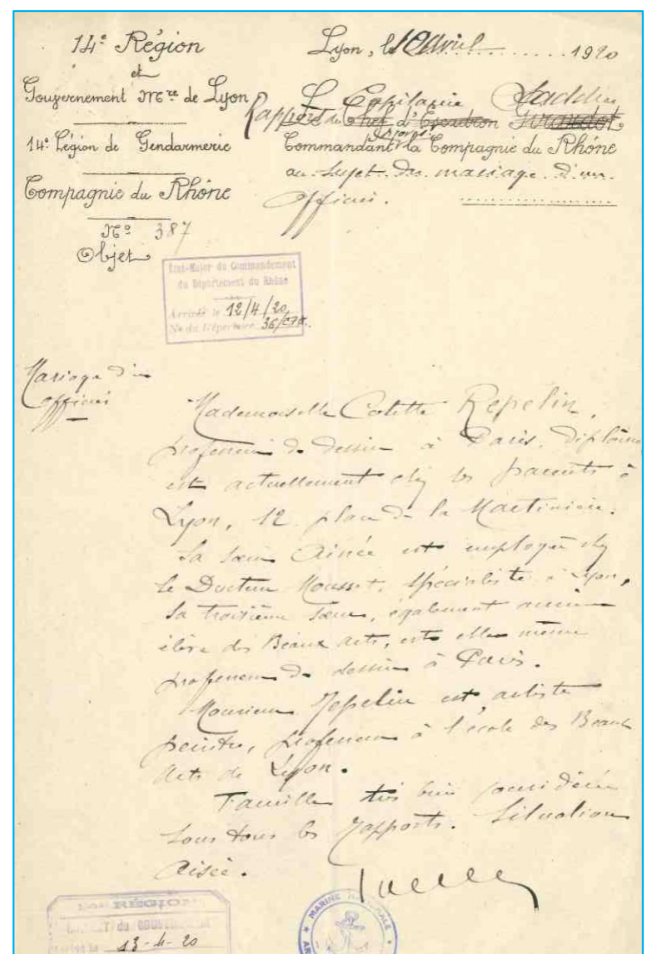 14e Région
et
Gouvernement Mre de Lyon
14e Légion de Gendarmerie
Compagnie du Rhône
No 387
Objet
Lyon, le 10 Avril 1920
Rapport du Chef d'Escadron Girardot
Le Capitaine
Commandant la Compagnie du Rhône
au sujet du mariage d'un
officier.
Etat-Major du Commandement
du Département du Rhône
Arrivée le 12/4/20
No du Répertoire 36/
Mariage d'un
officier
Mademoiselle Colette Repelin,
professeur de dessin à Paris, diplômée
est actuellement chez ses parents à
Lyon, 12 place de la Martinière.
Sa sœur Ainée est employée chez
le Docteur Mousset, spécialiste à Lyon,
Sa troisième sœur, également ancienne
élève des Beaux arts, est elle même
professeur de dessin à Paris.
Monsieur Repelin est artiste
peintre, professeur à l'école des Beaux
Arts de Lyon.
Famille très bien considérée
sous tous les rapports. Situation
Aisée.
RÉGION
du GOUVERNEMENT
13-4-20
MARINE NATIONALE